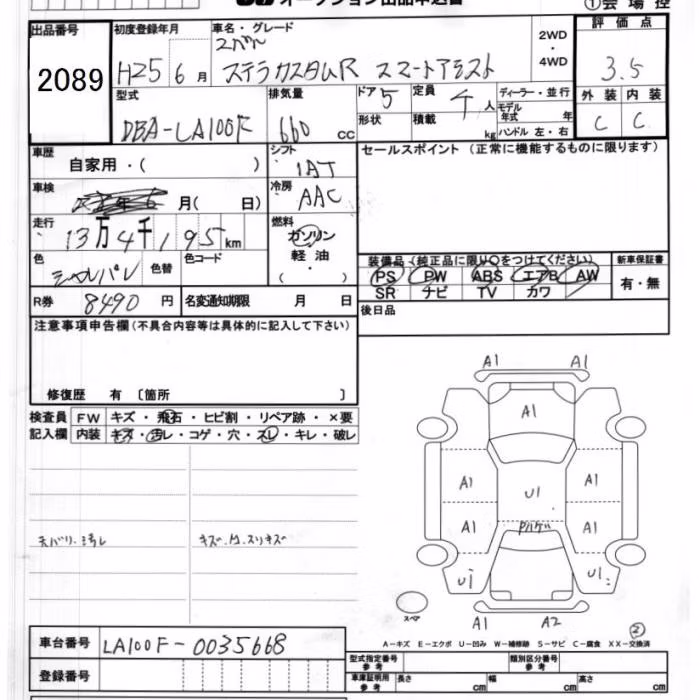 オークション出品申込書
①会場控
出品番号
2089
初度登録年月
H25 6月
車名・グレード
スバル
ステラカスタムR スマートアシスト
2WD
・
4WD
評価点
3.5
型式
DBA-LA100F
排気量
660 cc
ドア 5
形状
定員 4人
積載 kg
ディーラー・並行
モデル年式 年
ハンドル 左・右
外装 内装
C C
車歴
自家用・( )
シフト
IAT
セールスポイント(正常に機能するものに限ります)
車検
月( 日)
冷房
AAC
走行
13万4千195km
燃料
ガソリン
軽油
・
( )
色
シールパレ
色替
色コード
装備品(純正品に限り○をつけてください)
新車保証書
PS PW ABS エアB AW
SR ナビ TV カワ
有・無
R券 8490円
名変通知期限 月 日
後日品
注意事項申告欄(不具合内容等は具体的に記入して下さい)
修復歴 有 〔箇所 〕
検査員
記入欄
FW キズ・飛石・ヒビ割・リペア跡・×要
内装 キズ・汚レ・コゲ・穴・スレ・キレ・破レ
天バリ・汚レ
A1 A1
A1
A1 A1
U1
A1 A1
U1 U1
スペア
A1 A2
②
車台番号 LA100F-0035668
登録番号
A-キズ E-エクボ U-凹み W-補修跡 S-サビ C-腐食 XX-交換済
型式指定番号
参考
類別区分番号
参考
車庫証明用
参考
長さ cm 幅 cm 高さ cm